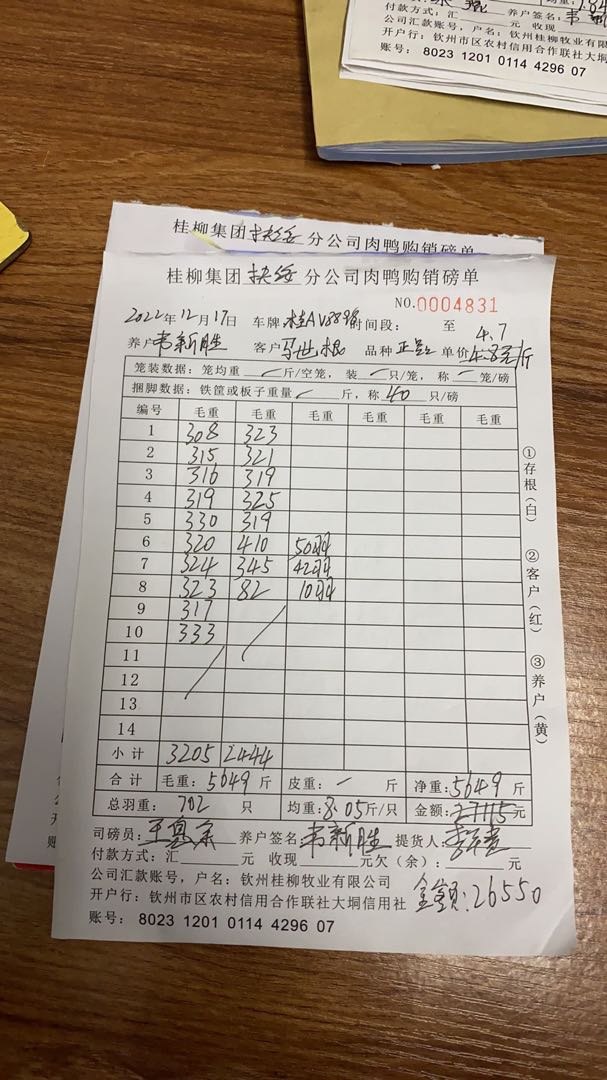 付款方式：汇 元 收现
养户签名：韦新
公司汇款账号，户名：钦州桂柳牧业有限公
开户行：钦州市区农村信用合作联社大垌
账号： 8023 1201 0114 4296 07
桂柳集团 扶绥 分公司肉鸭购销磅单
桂柳集团 扶绥 分公司肉鸭购销磅单
NO.0004831
2022年12月17日 车牌 时间段： 至 4.7
养户 韦新胜 客户 马世根 品种 单价 4.8元/斤
笼装数据：笼均重 斤/空笼，装 只/笼，称 笼/磅
捆脚数据：铁筐或板子重量 斤，称 40 只/磅
编号 毛重 毛重 毛重 毛重 毛重 毛重
1 308 323
2 315 321
3 316 319
4 319 325
5 330 319
6 320 410 50羽
7 324 345 42羽
8 323 82 10羽
9 317
10 333
11
12
13
14
小计 3205 2444
合计 毛重：5649斤 皮重：一 斤 净重：5649斤
总羽重： 702 只 均重：8.05斤/只 金额：27115元
司磅员： 养户签名 韦新胜 提货人：
付款方式：汇 元 收现 元欠（余）： 元
公司汇款账号，户名：钦州桂柳牧业有限公司
开户行：钦州市区农村信用合作联社大垌信用社 金额：26550
账号： 8023 1201 0114 4296 07
①存根（白）
②客户（红）
③养户（黄）